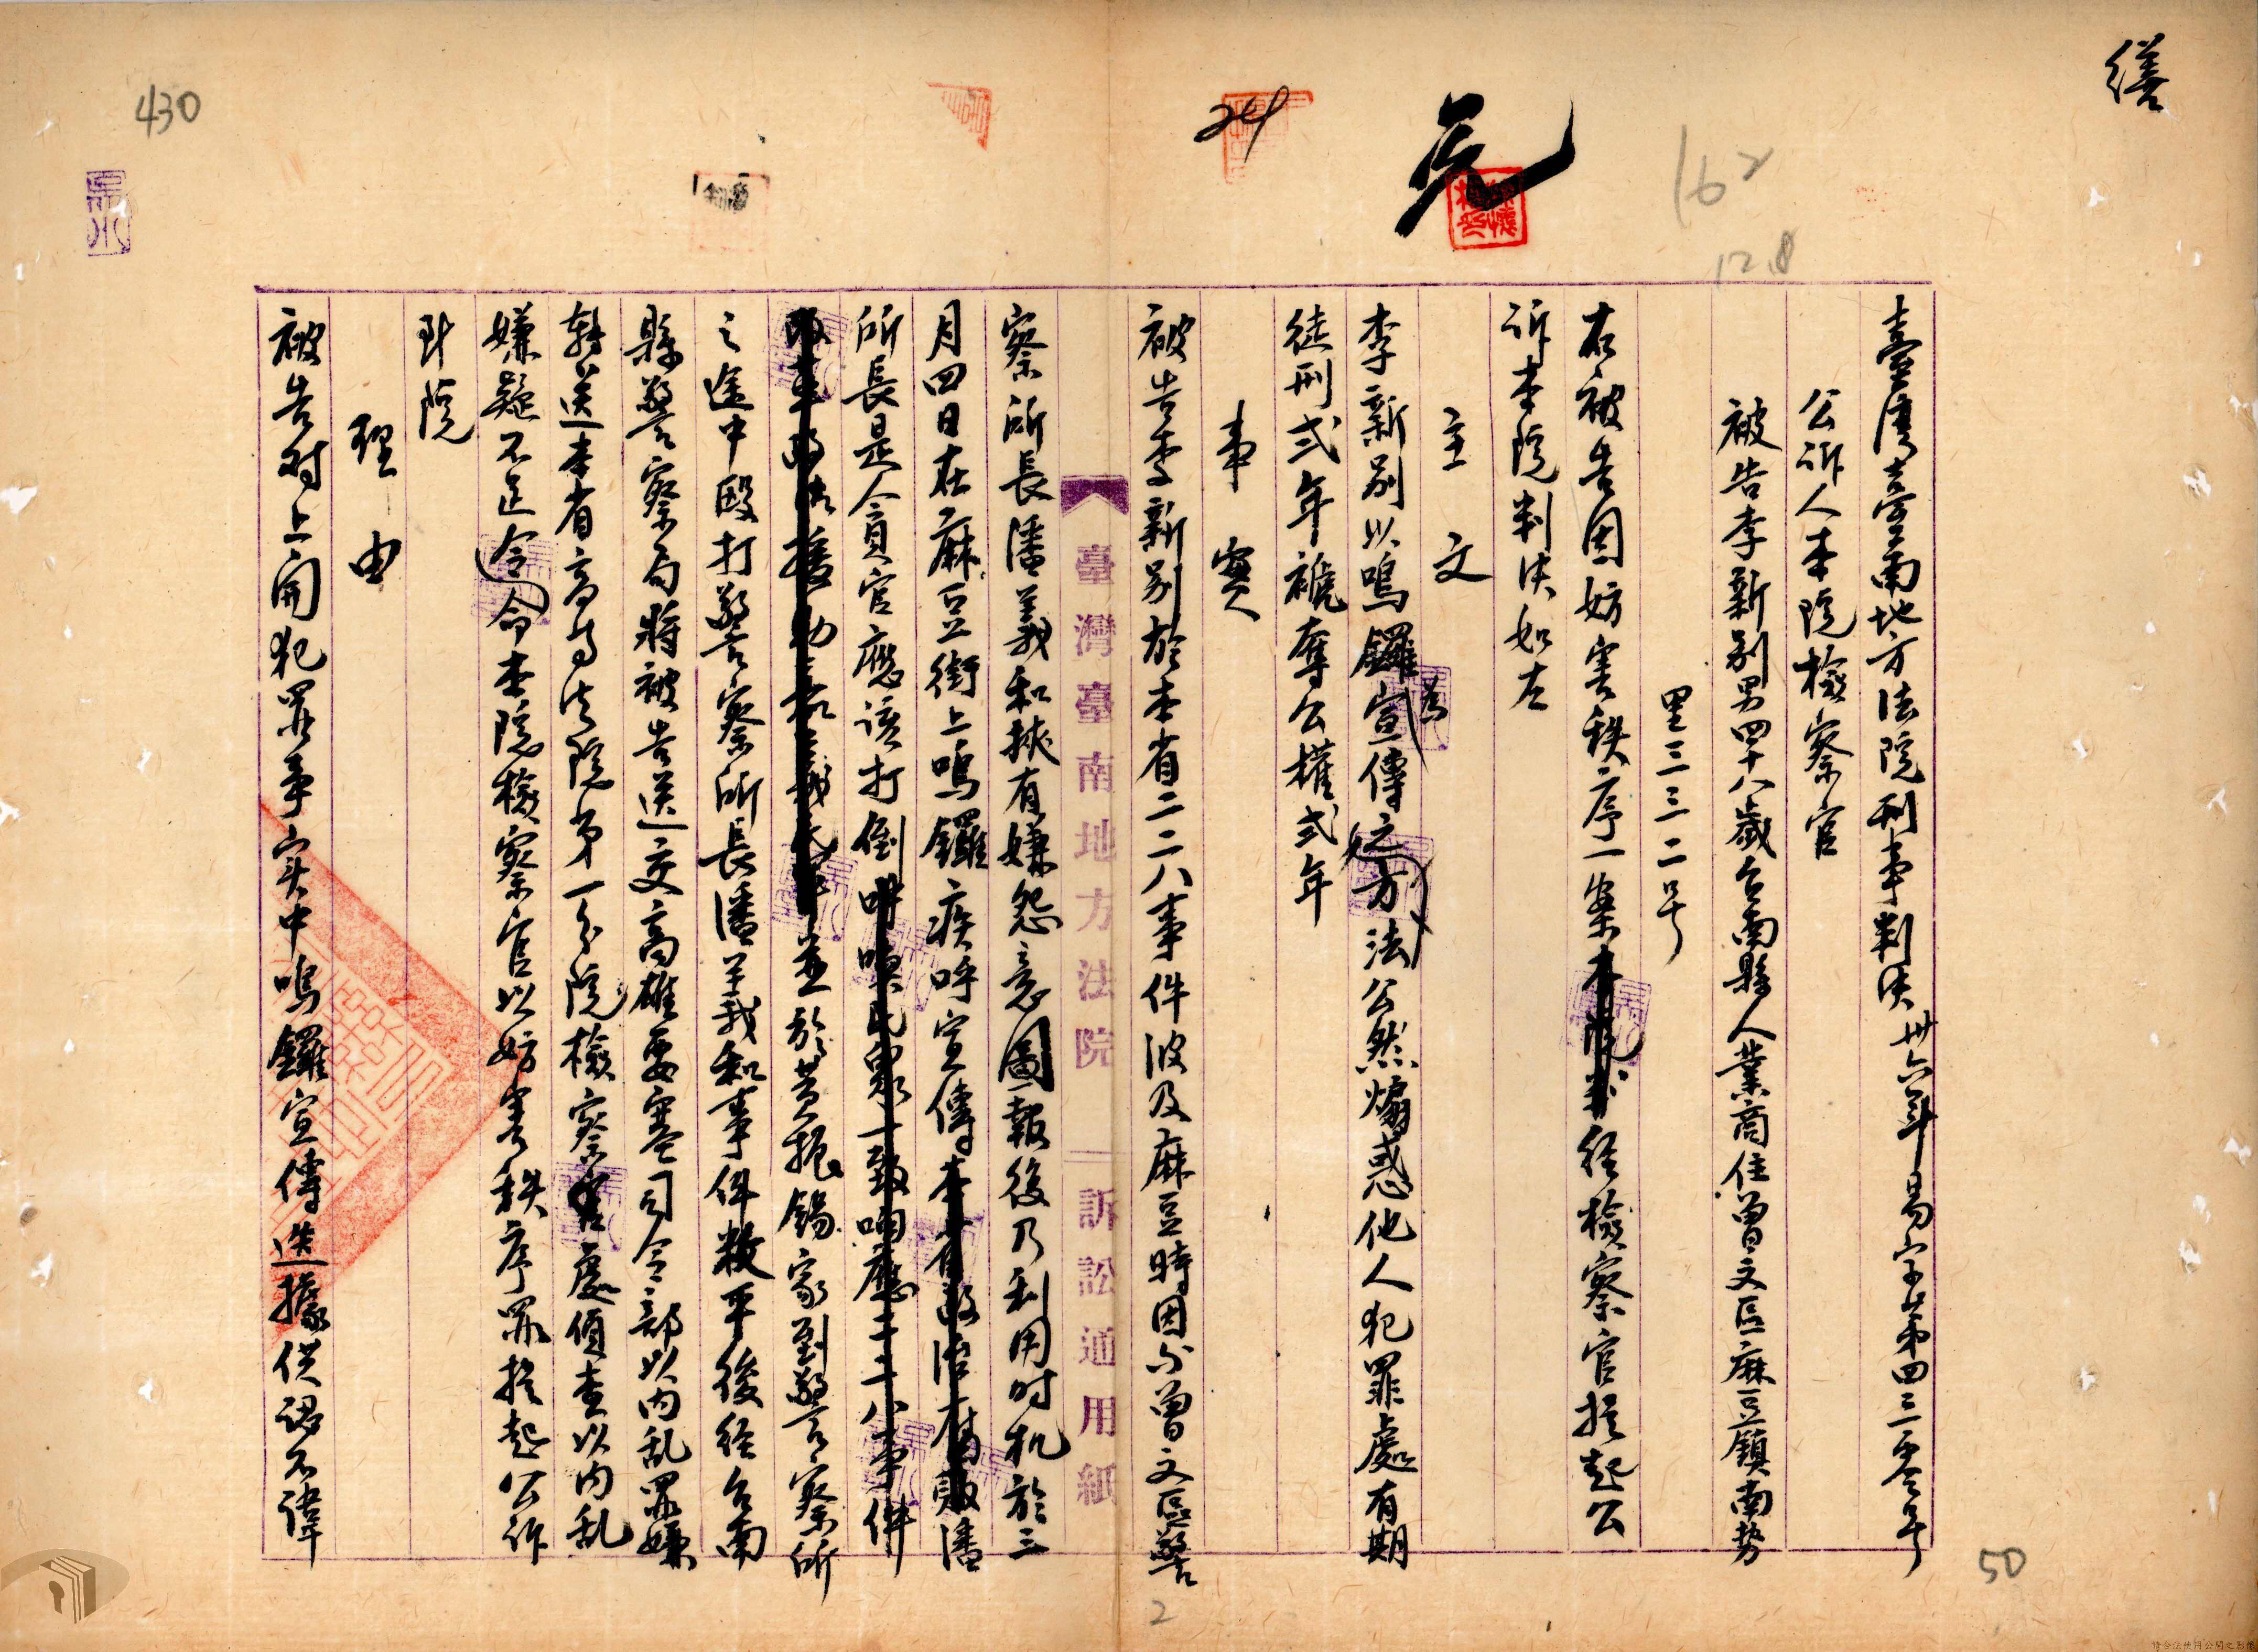 繕
162
12.8
24
430
臺灣臺南地方法院刑事判決 卅六年易字第四三零號
公訴人本院檢察官
被告李新別男四十八歲台南縣人業商住曾文區麻豆鎮南勢
里三三二号
右被告因妨害秩序一案经檢察官提起公
訴本院判决如左
主 文
李新别以鳴鑼宣傳為方法公然煽惑他人犯罪處有期
徒刑弍年褫奪公權弍年
事 實
被告李新别於本省二二八事件波及麻豆時因与曾文區警
臺灣臺南地方法院 訴訟通用紙
察所長潘義和挾有嫌怨意圖報後乃利用时机於三
月四日在麻豆街上鳴鑼疾呼宣傳本省政治腐敗潘
所長是貪官應該打倒吽喚民眾一致响應二二八事件
並於黃挽錫家到警察所
之途中毆打警察所長潘義和事件救平後经台南
縣警察局將被告送交高雄要塞司令部以内乱罪嫌
轉送本省高等法院第一分院檢察處偵查以内乱
嫌疑不足令本院檢察官以妨害秩序罪提起公訴
到院
理 由
被告对上開犯罪事实中鳴鑼宣傳迭據供認不諱
50
2
請合法使用公開之影像